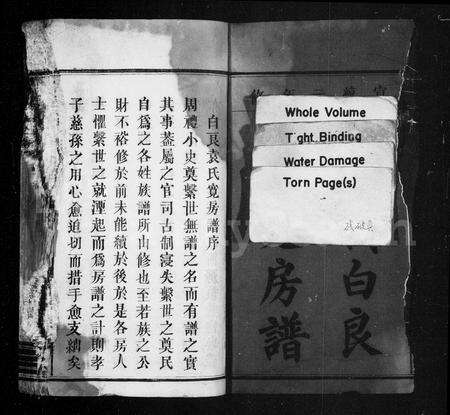 Whole Volume
Tight Binding
Water Damage
Torn Page(s)
白良
房譜
白良袁氏寬房譜序
周禮小史奠繫世無譜之名而有譜之實
其事蓋屬之官司古制寖失繫世之奠民
自為之各姓族譜所由修也至若族之公
財不裕修於前未能續於後於是各房人
士懼繫世之就湮起而為房譜之計則孝
子慈孫之用心愈迫切而措手愈支絀矣